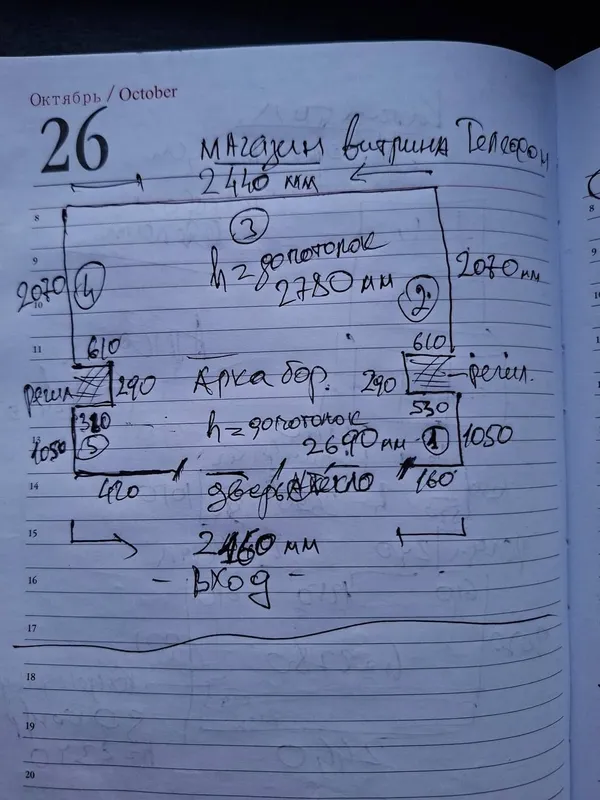 Октябрь / October
26
магазин витрина Телефон
2440 мм
8
3
h = до потолок
2780 мм
9
2070
4
2070 мм
10
2
11
610
610
решл.
290
Арка бор.
290
решл.
310
530
h = до потолок
13
1050
5
2690 мм
1
1050
14
420
дверь стекло
160
15
2460 мм
16
- вход -
17
18
19
20
8
9
10